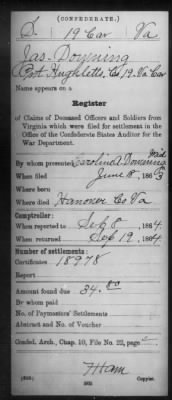 (CONFEDERATE.)
D. 19 Cav Va
Jas. Downing
Pvt Hughlett's Co 19 Va Cav
Name appears on a
Register
of Claims of Deceased Officers and Soldiers from
Virginia which were filed for settlement in the
Office of the Confederate States Auditor for the
War Department.
By whom presented Carolina Downing Wid
When filed June 18, 1863
Where born
Where died Hanover Co Va
Comptroller:
When reported to Sep 8, 1864.
When returned Sep 19, 1864
Number of settlements:
Certificates 18978
Report
Amount found due 34.80
By whom paid
No. of Paymasters' Settlements
Abstract and No. of Voucher
Confed. Arch., Chap. 10, File No. 22, page
Ham
Copyist.